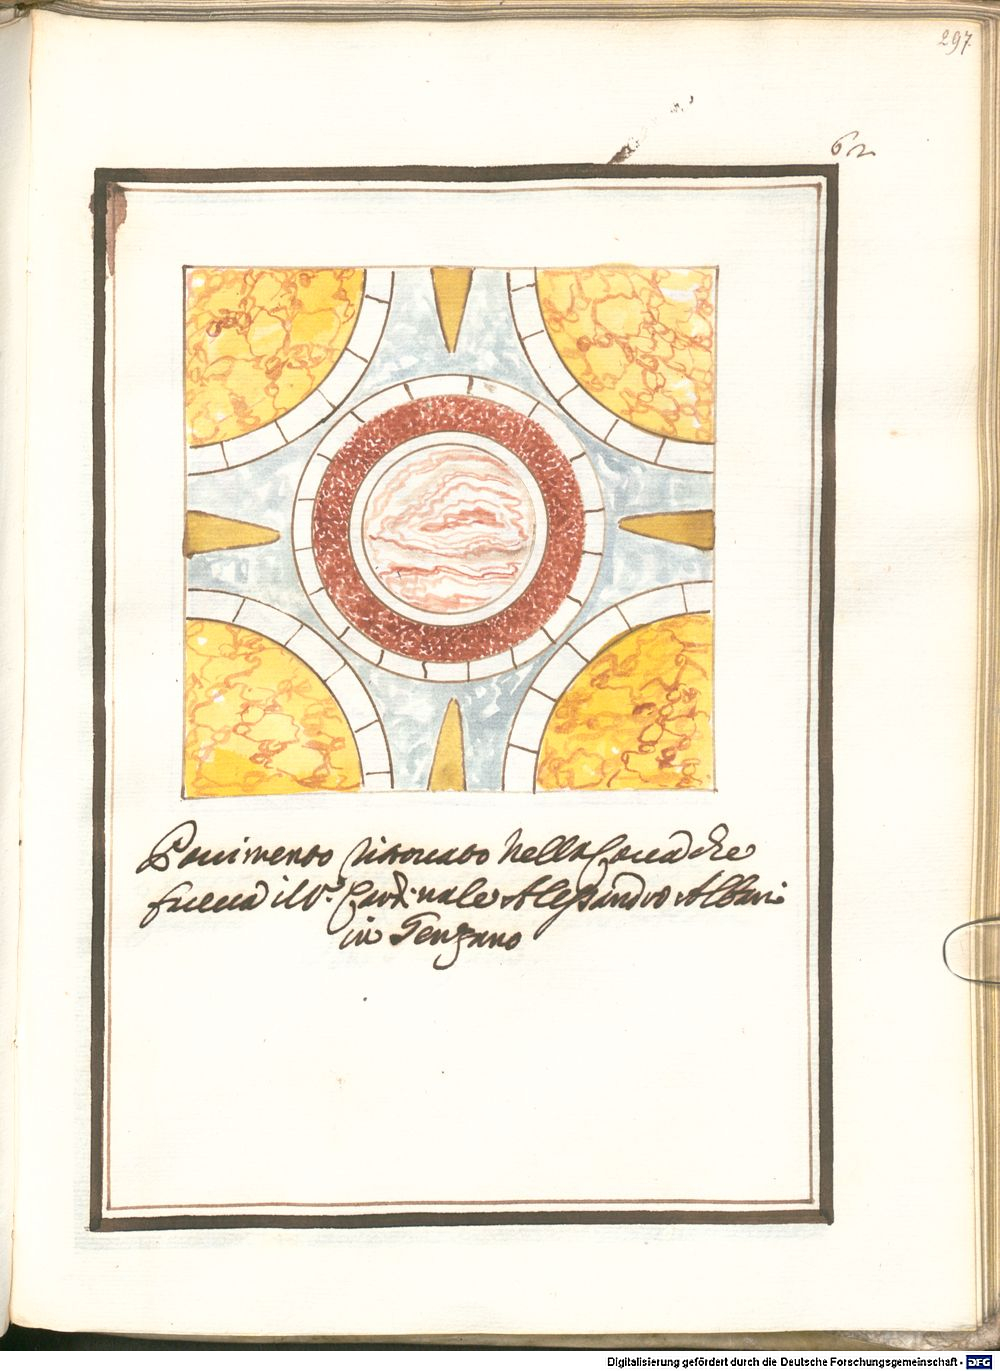 297
62
Pauimento ritrouato nella Caua che
faceua il S.r Card.nale Alessandro Albani
in Genzano
Digitalisierung gefördert durch die Deutsche Forschungsgemeinschaft - DFG